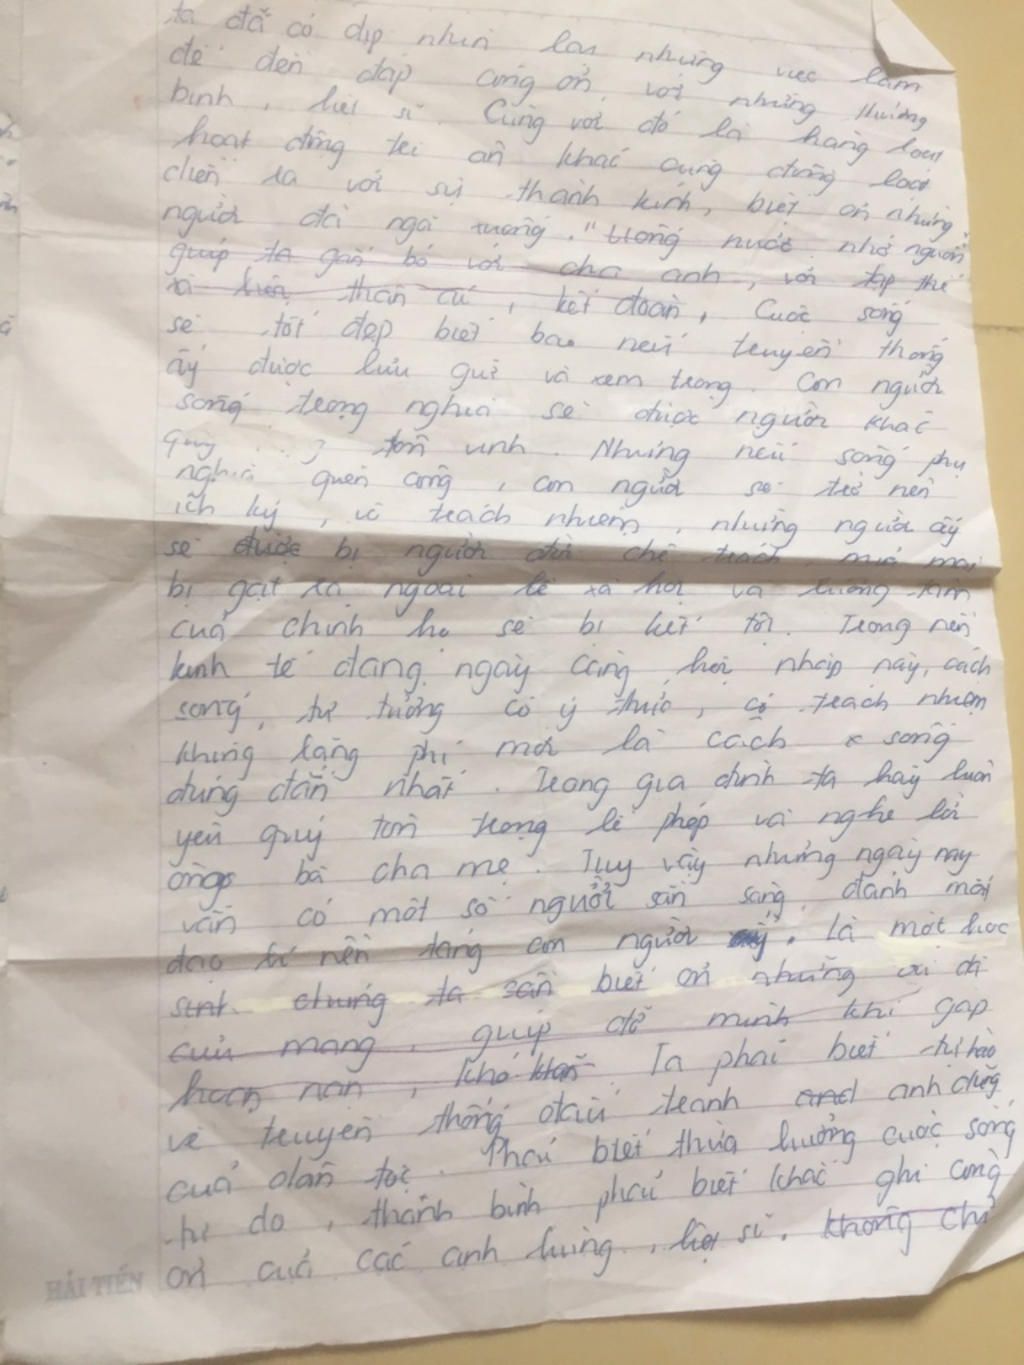 ta đã có dịp nhìn lại những việc làm
để đền đáp công ơn với những thương
binh, liệt sĩ. Cùng với đó là hàng loạt
hoạt động tri ân khác cũng đồng loạt
diễn ra với sự thành kính, biết ơn những
người đã ngã xuống. "Uống nước nhớ nguồn"
giúp ta gắn bó với cha anh, với tập thể
xã hội thân ái, kết đoàn. Cuộc sống
sẽ tốt đẹp biết bao nếu truyền thống
ấy được lưu giữ và xem trọng. Con người
sống trọng nghĩa sẽ được người khác
quý tôn vinh. Nhưng nếu sống phụ
nghĩa quên công, con người sẽ trở nên
ích kỷ, vô trách nhiệm, những người ấy
sẽ được bị người đời chê trách, mỉa mai
bị gạt ra ngoài lề xã hội và lương tâm
của chính họ sẽ bị kết tội. Trong nền
kinh tế đang ngày càng hội nhập này, cách
sống, tư tưởng có ý thức, có trách nhiệm
không lãng phí mới là cách sống
đúng đắn nhất. Trong gia đình ta hãy luôn
yêu quý tôn trọng lễ phép và nghe lời
ông bà cha mẹ. Tuy vậy nhưng ngày nay
vẫn có một số người sẵn sàng đánh mất
đạo lí nền tảng con người ấy. Là một học
sinh chúng ta cần biết ơn những vị đã
cưu mang, giúp đỡ mình khi gặp
hoạn nạn, khó khăn. Ta phải biết tự hào
về truyền thống đấu tranh and anh dũng
của dân tộc. Phải biết thừa hưởng cuộc sống
tự do, thánh bình phải biết khắc ghi công
ơn của các anh hùng, liệt sĩ. không chỉ
HẢI TIẾN